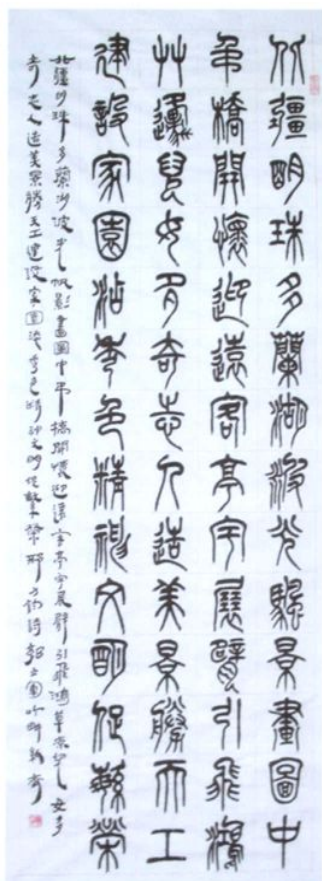 北疆明珠多蘭湖波光颿景畫圖中
弔橋開懷迎遠客亭宇展臂引飛鴻
艸邍兒女多奇志人造美景勝天工
建設家園添春色精神文明促繁榮
北疆明珠多蘭湖波光帆影畫圖中弔橋開懷迎遠客亭宇展臂引飛鴻草原兒女多
奇志人造美景勝天工建設家園添春色精神文明促繁榮